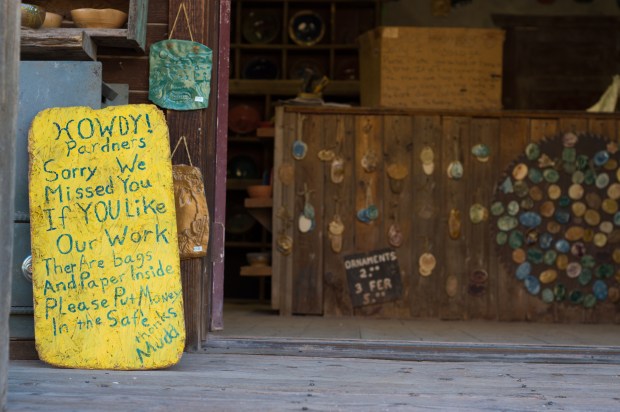 HOWDY!
Pardners
Sorry We
Missed You
If YOU Like
Our Work
Ther Are bags
And Paper Inside
Please Put Money
In the Safe
thanks
Mudd
ORNAMENTS
2.00
3 FER
5.00